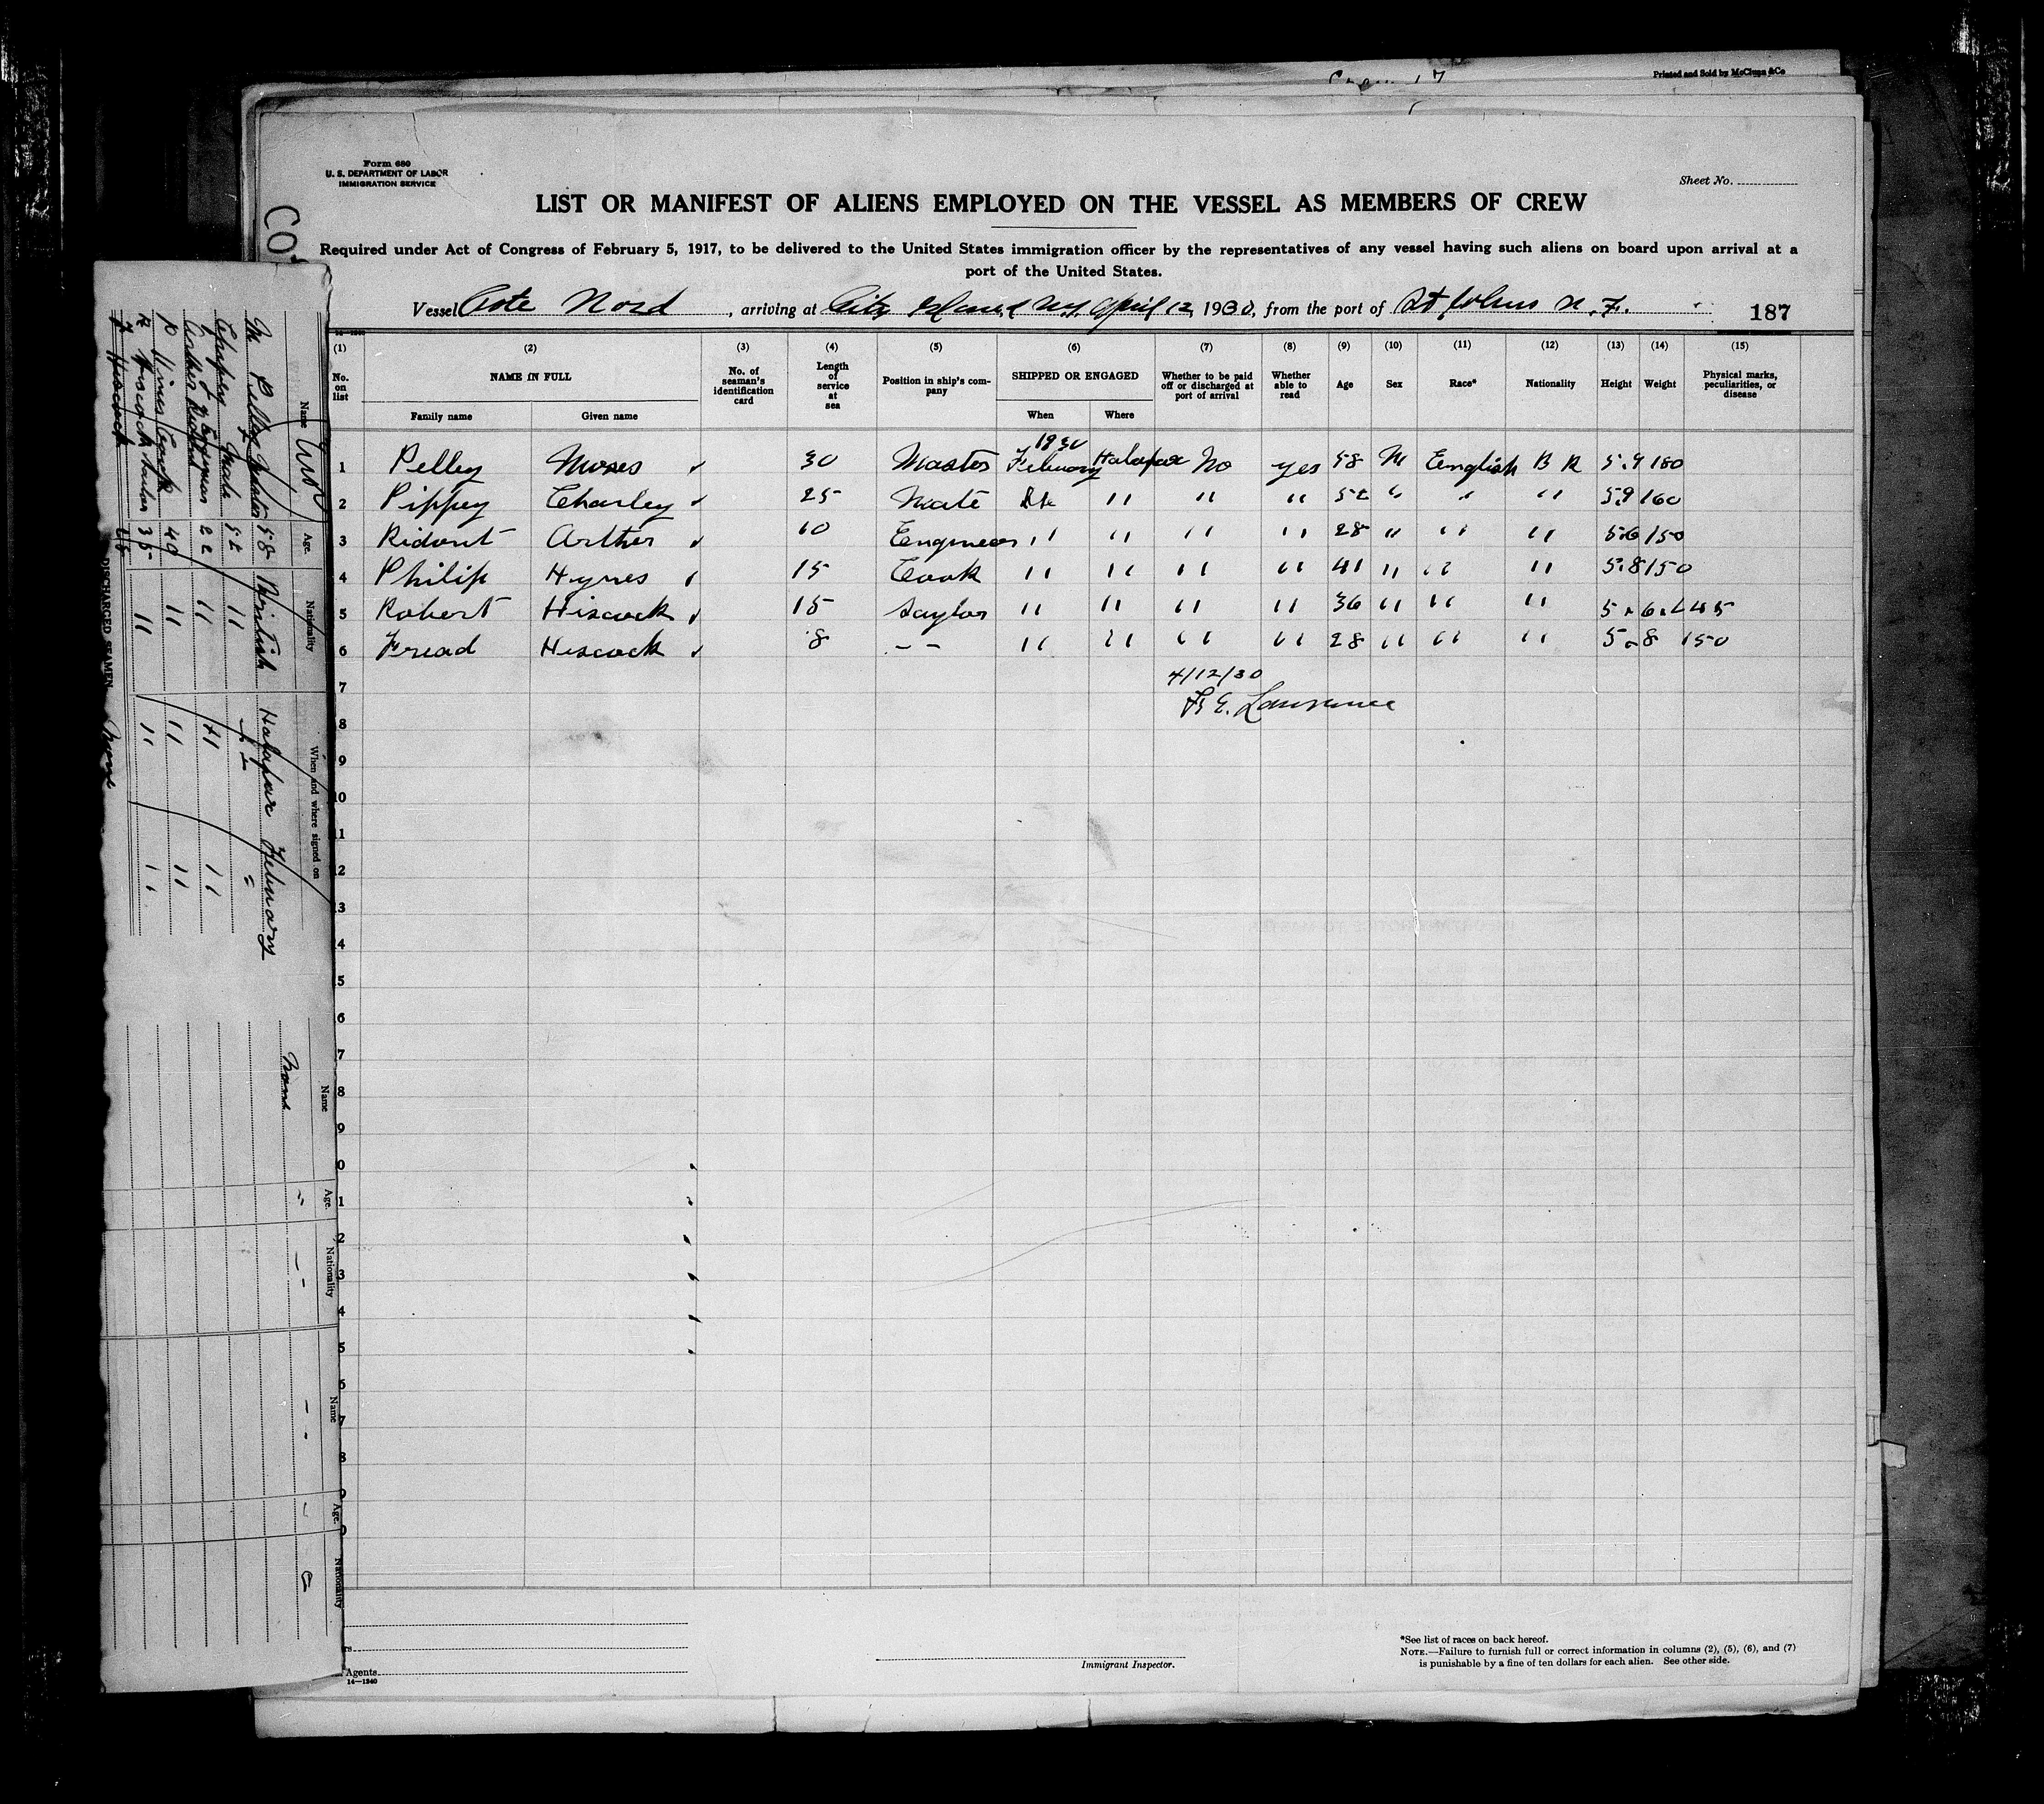 Printed and Sold by McClunn & Co
Form 680
U. S. DEPARTMENT OF LABOR
IMMIGRATION SERVICE
Sheet No.
LIST OR MANIFEST OF ALIENS EMPLOYED ON THE VESSEL AS MEMBERS OF CREW
Required under Act of Congress of February 5, 1917, to be delivered to the United States immigration officer by the representatives of any vessel having such aliens on board upon arrival at a
port of the United States.
Vessel Cote Nord, arriving at City Island N.Y. April 12, 1930, from the port of St Johns N.F.
187
(1) (2) (3) (4) (5) (6) (7) (8) (9) (10) (11) (12) (13) (14) (15)
No. on list NAME IN FULL No. of seaman's identification card Length of service at sea Position in ship's company SHIPPED OR ENGAGED Whether to be paid off or discharged at port of arrival Whether able to read Age Sex Race* Nationality Height Weight Physical marks, peculiarities, or disease
Family name Given name When Where
1930
1 Pelley Moses 30 Master Febuary Halafax No yes 58 M English B R 5.9 180
2 Pippey Charley 25 Mate " " " 52 " " " 5.9 160
3 Ridout Arther 10 Engineer " " " " 28 " " " 5.6 150
4 Philip Hynes 15 Cook " " " " 41 " " " 5.8 150
5 Robert Hiscock 15 Saylor " " " " 36 " " " 5.6 145
6 Fread Hiscock 8 - - " " " " 28 " " " 5.8 150
7 4/12/30
8 Lawrence
9
10
11
12
13
14
15
6
7
8
9
0
1
2
3
4
5
6
7
8
9
0
Agents
14—1240
Immigrant Inspector.
*See list of races on back hereof.
NOTE.—Failure to furnish full or correct information in columns (2), (5), (6), and (7)
is punishable by a fine of ten dollars for each alien. See other side.
Name Age. Nationality When and where signed on
M Pelley Master 58 British Halafax Febuary
Mate 52 " " "
Arther Ridout Engineer 22 " " "
Hines Cook 40 " " "
R Hiscock Sailor 35 " " "
F Hiscock 28
DISCHARGED SEAMEN None
Name Age. Nationality Name Age. Nationality
None